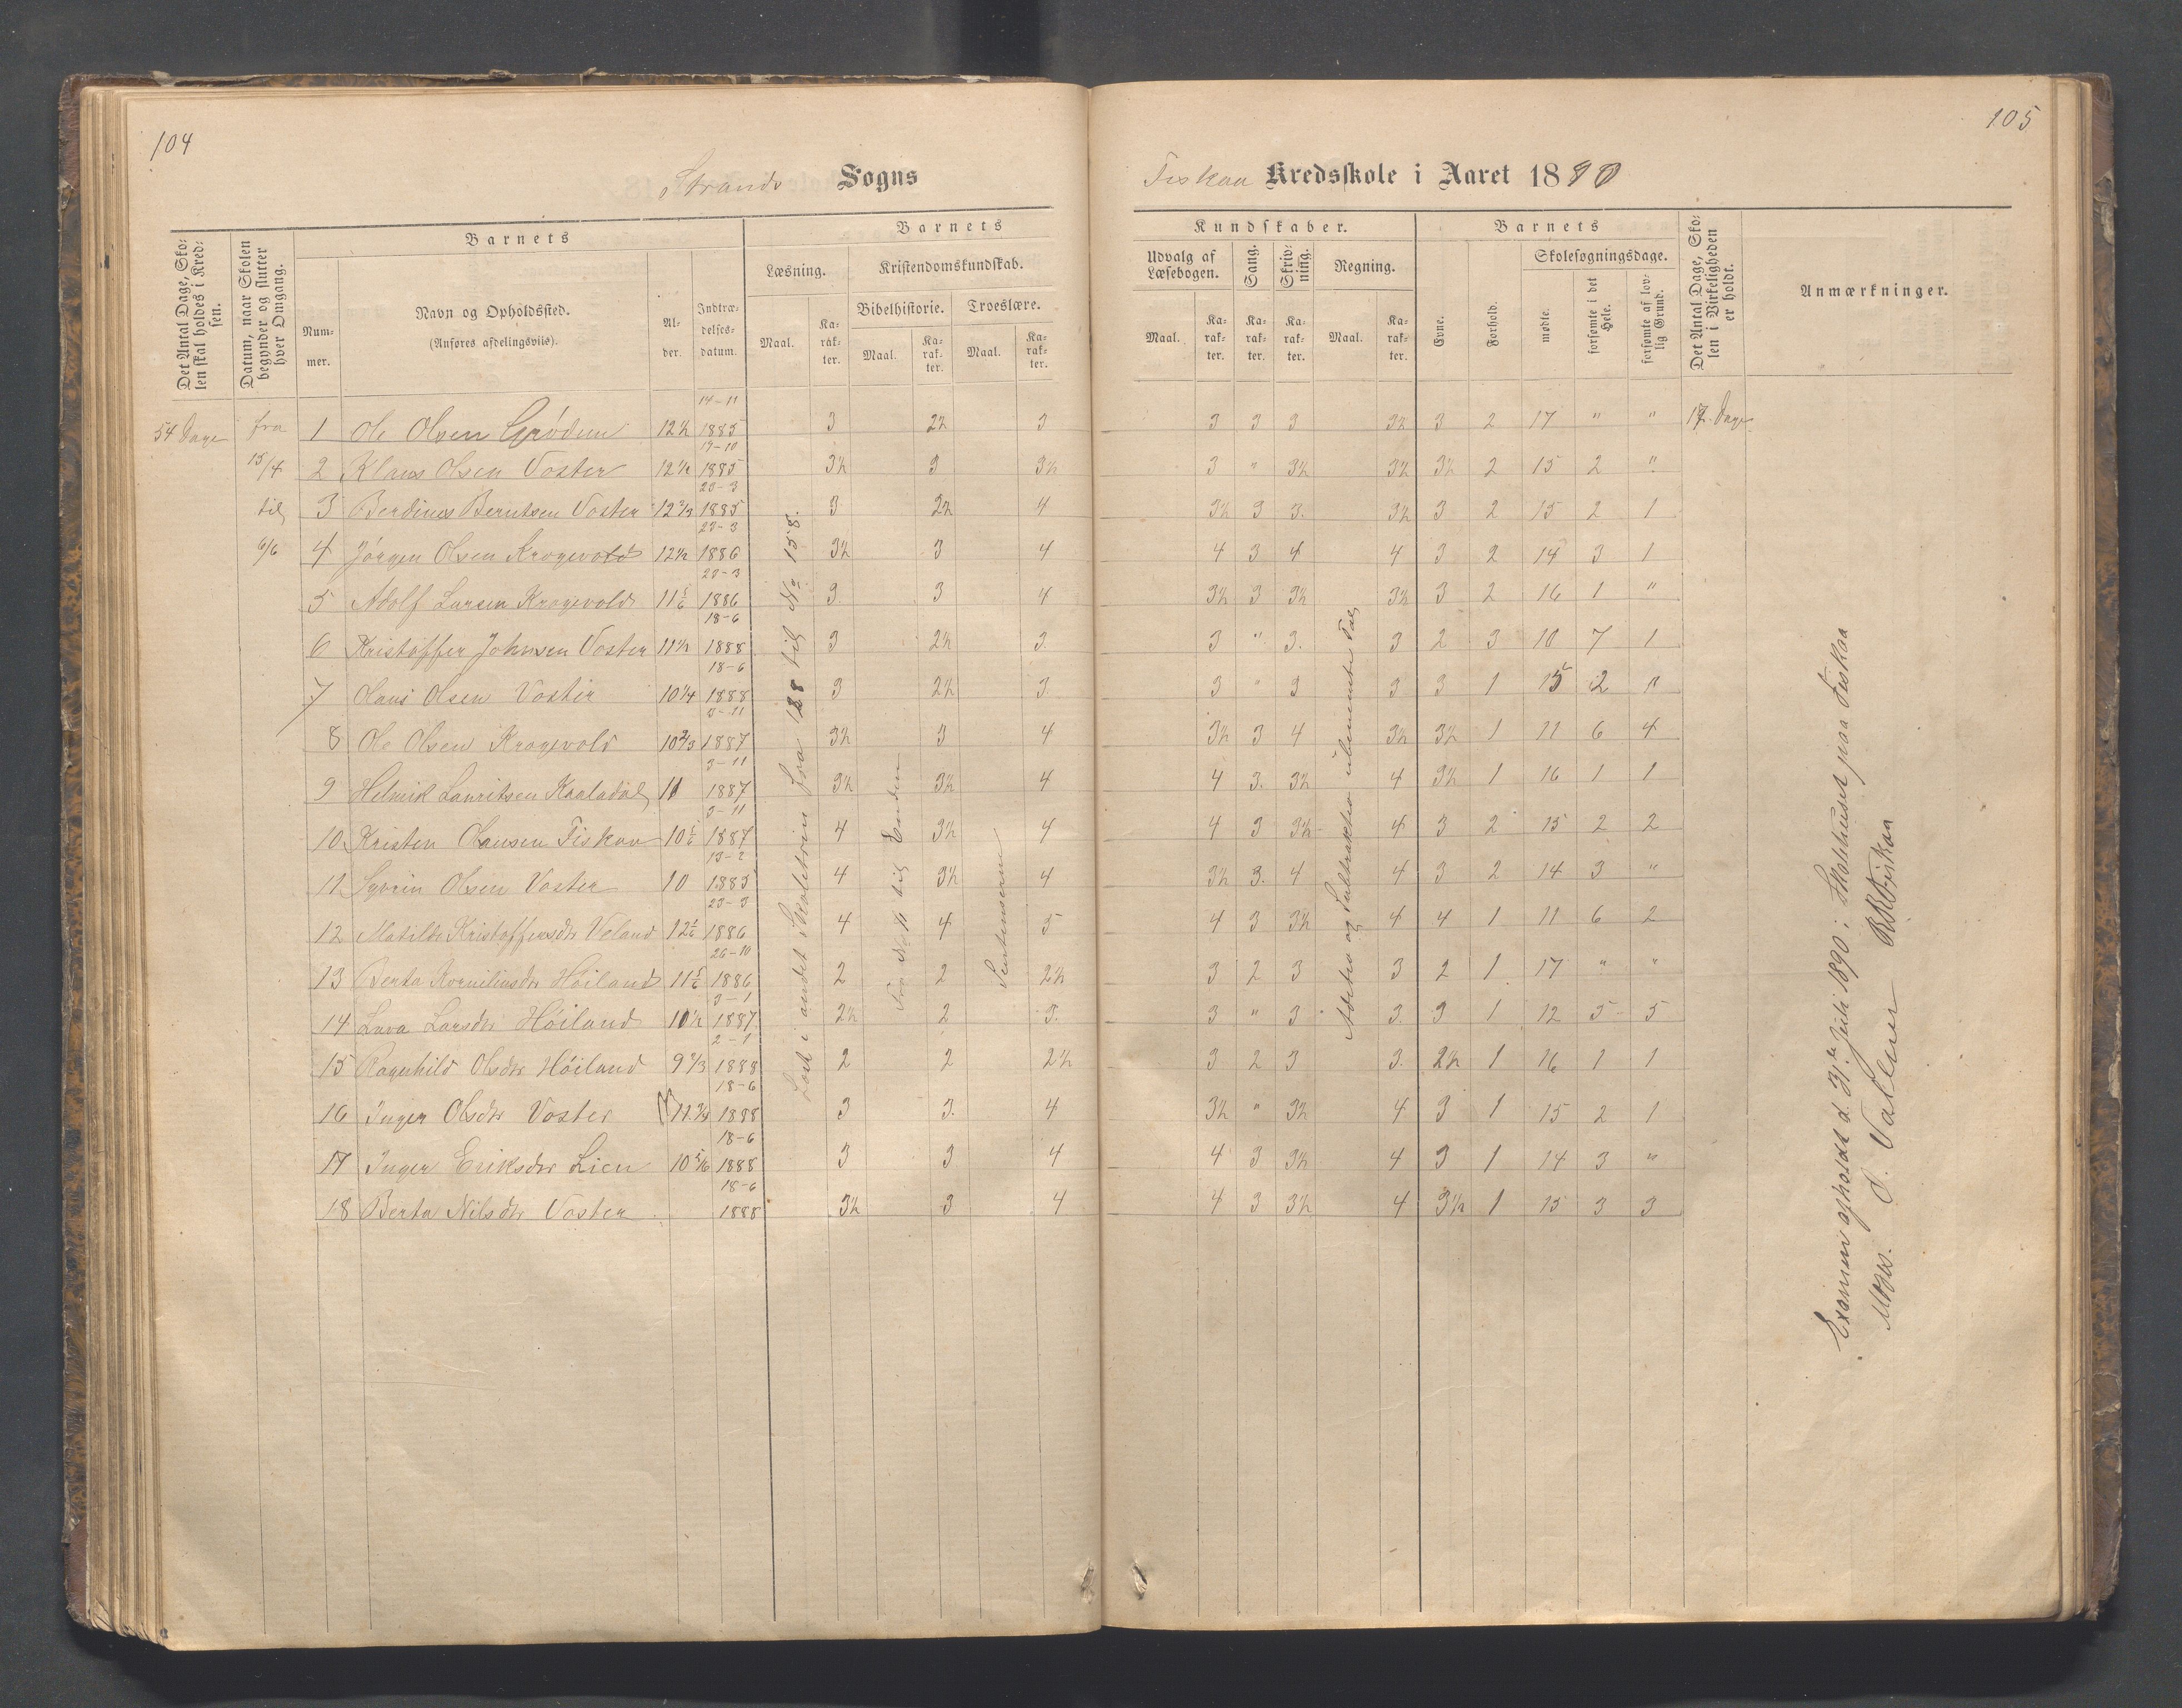 104
105
Strands Sogns
Fiskaa Kredsskole i Aaret 1890
Det Antal Dage, Skolen skal holdes i Kredsen.
Datum, naar Skolen begynder og slutter hver Omgang.
Barnets
Nummer.
Navn og Opholdssted.
(Anføres afdelingsviis).
Alder.
Indtrædelsesdatum.
Barnets
Læsning.
Kristendomskundskab.
Bibelhistorie.
Troeslære.
Maal.
Karakter.
Maal.
Karakter.
Maal.
Karakter.
Kundskaber.
Udvalg af Læsebogen.
Sang.
Skrivning.
Regning.
Maal.
Karakter.
Karakter.
Karakter.
Maal.
Karakter.
Barnets
Evne.
Forhold.
Skolesøgningsdage.
mødte.
forsømte i det Hele.
forsømte af lovlig Grund.
Det Antal Dage, Skolen i Virkeligheden er holdt.
Anmærkninger.
54 Dage fra 15/4 til 6/6
1 Ole Olsen Grødem 12½ 14-11 1885 3 2½ 3 3 3 3 3½ 3 2 17 " " 17 Dage
2 Klaus Olsen Voster 12½ 19-10 1885 3½ 3 3½ 3 " 3½ 3½ 3½ 2 15 2 "
3 Berdines Berntsen Voster 12⅔ 23-3 1885 3 2½ 4 3½ 3 3. 3½ 3 2 15 2 1
4 Jørgen Olsen Krogevold 12½ 23-3 1886 3½ 3 4 4 3 4 4 3 2 14 3 1
5 Adolf Larsen Krogevold 11 5/6 23-3 1886 3 3 4 3½ 3 3½ 3½ 3 2 16 1 "
6 Kristoffer Johnsen Voster 11½ 18-6 1888 3 2½ 3. 3 " 3. 3 2 3 10 7 1
7 Hans Olsen Voster 10¼ 18-6 1888 3 2½ 3 3 " 3 3 3 1 15 2 "
8 Ole Olsen Krogevold 10⅔ 3-11 1887 3½ 3 4 3½ 3 4 3½ 3½ 1 11 6 4
9 Helmik Lauritsen Kaaladal 11 3-11 1887 3½ 3½ 4 4 3. 3½ 4 3½ 1 16 1 1
10 Kristen Clausen Fiskaa 10 5/6 3-11 1887 4 3½ 4 4 3 3½ 4 3 2 15 2 2
11 Syvrin Olsen Voster 10 13-2 1885 4 3½ 4 3½ 3. 4 4 3 2 14 3 "
12 Matilde Kristoffersdtr Veland 12 1/6 23-3 1886 4 4 5 4 3 3½ 4 4 1 11 6 2
13 Berta Korneliusdtr Høiland 11 5/6 26-10 1886 2 2 2½ 3 2 3 3 2 1 17 " "
14 Lava Larsdtr Høiland 10½ 3-1 1887 2½ 2 3. 3 " 3 3. 3 1 12 5 5
15 Ragnhild Olsdtr Høiland 9⅔ 2-1 1888 2 2 2½ 3 2 3 3. 2½ 1 16 1 1
16 Inger Olsdtr Voster 11¾ 18-6 1888 3 3. 4 3½ " 3½ 4 3 1 15 2 1
17 Inger Eriksdtr Lien 10 5/6 18-6 1888 3 3 4 4 3 3½ 4 3 1 14 3 "
18 Berta Nilsdtr Voster 18-6 1888 3½ 3 4 4 3 3½ 4 3½ 1 15 3 3
Læst i andet Skoletrin fra 128 til No 158.
Fra No 11 til Enden
Addition og Subtraktion ubenævnte Tal
Examen afholdt d. 31te Juli 1890 i Skolehuset paa Fiskaa
R.R. Fiskaa